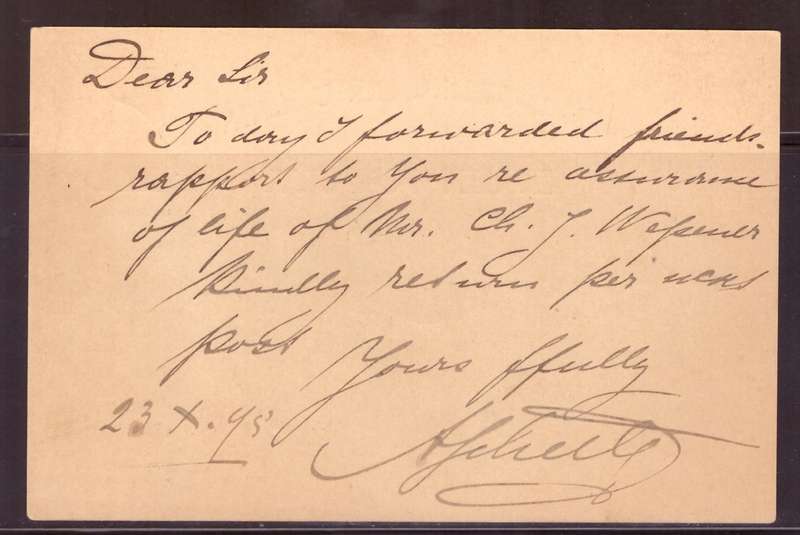 Dear Sir
To day I forwarded friends-
rapport to You re assurance
of life of Mr. Ch. J. Wessener
Kindly return per next
post
Yours ffully
23 X. 93